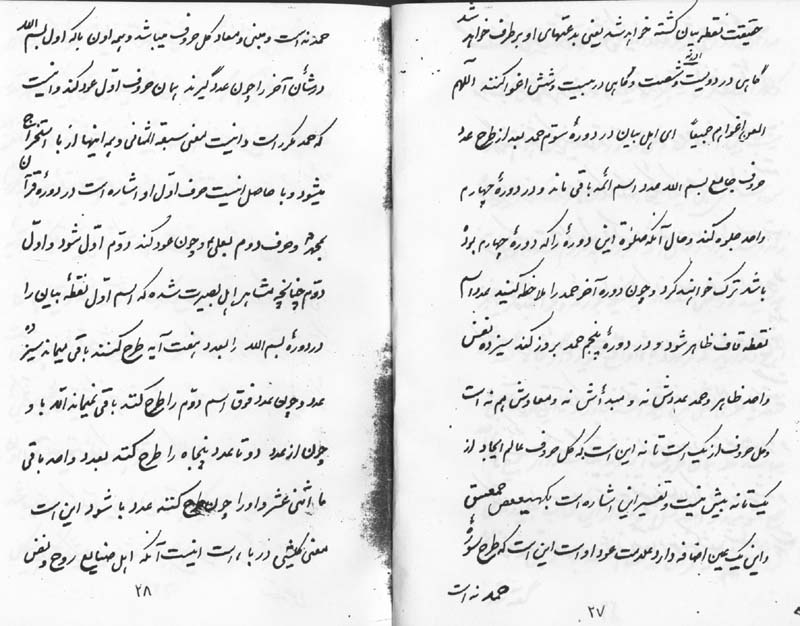 حقیقت نقطه بیان کشته خواهد شد یعنی بدعتهای او برطرف خواهد شد
گاهی در دویست و شصت و گاهی در بیست و شش اغوا کنند اللهم
العن اغواهم جمیعاً ای اهل بیان در دورهٔ سوّم حمد بعد از طرح عدد
حروف جامع بسم الله عدد اسم ائمه باقی ماند و در دورهٔ چهارم
واحد جلوه کند و حال آنکه صلوة این دوره را که دورهٔ چهارم بوده
باشد ترک خواهند کرد و چون دوره آخر حمد را ملاحظه کنید عدد اسم
نقطه قاف ظاهر شود و در دورهٔ پنجم حمد بروز کند سیزده نفس
واحد ظاهر و حمد عددش نه و مبدئش نه و معادش هم نه است
و کل حروف از یک است تا نه این است که کل حروف عالم ایجاد از
یک تا نه بیش نیست و تفسیر این اشاره است بکهیعص حمعسق
و این یک عین اضافه دارد علامت عود او است این است که طرح سورهٔ
حمد نه است
۲۷
حمد نه است و مبنی و معاد کل حروف میباشد و همه اون با که اول بسم الله
در شأن آخر را چون عدد گیرند همان حروف اوّل عود کند و انیست
که حمد مکرر است و انیست معنی سبعة المثانی و همه اینها از با استخراج
میشود و با حاصل انیست حرف اوّل او اشاره است در دورهٔ قرآن
بمحمد و حرف دوم بعلی و چون عود کند دوّم اوّل شود و اوّل
دوّم چنانچه مشاهد اهل بصیرت شده که اسم اوّل نقطهٔ بیان را
در دورهٔ بسم الله را بعدد هفت آیه طرح کنند باقی میماند سیزده
عدد و چون عدد فوق اسم دوّم را طرح کنند باقی نمیماند الّا با و
چون از عدد دو تا عدد پنجاه را طرح کنند بعدد واحد باقی
ماند اثنی عشر و او را چون طرح کنند عدد با شود این است
معنی کلشیئی در با است انیست آنکه اهل صنایع روح و نفس
۲۸